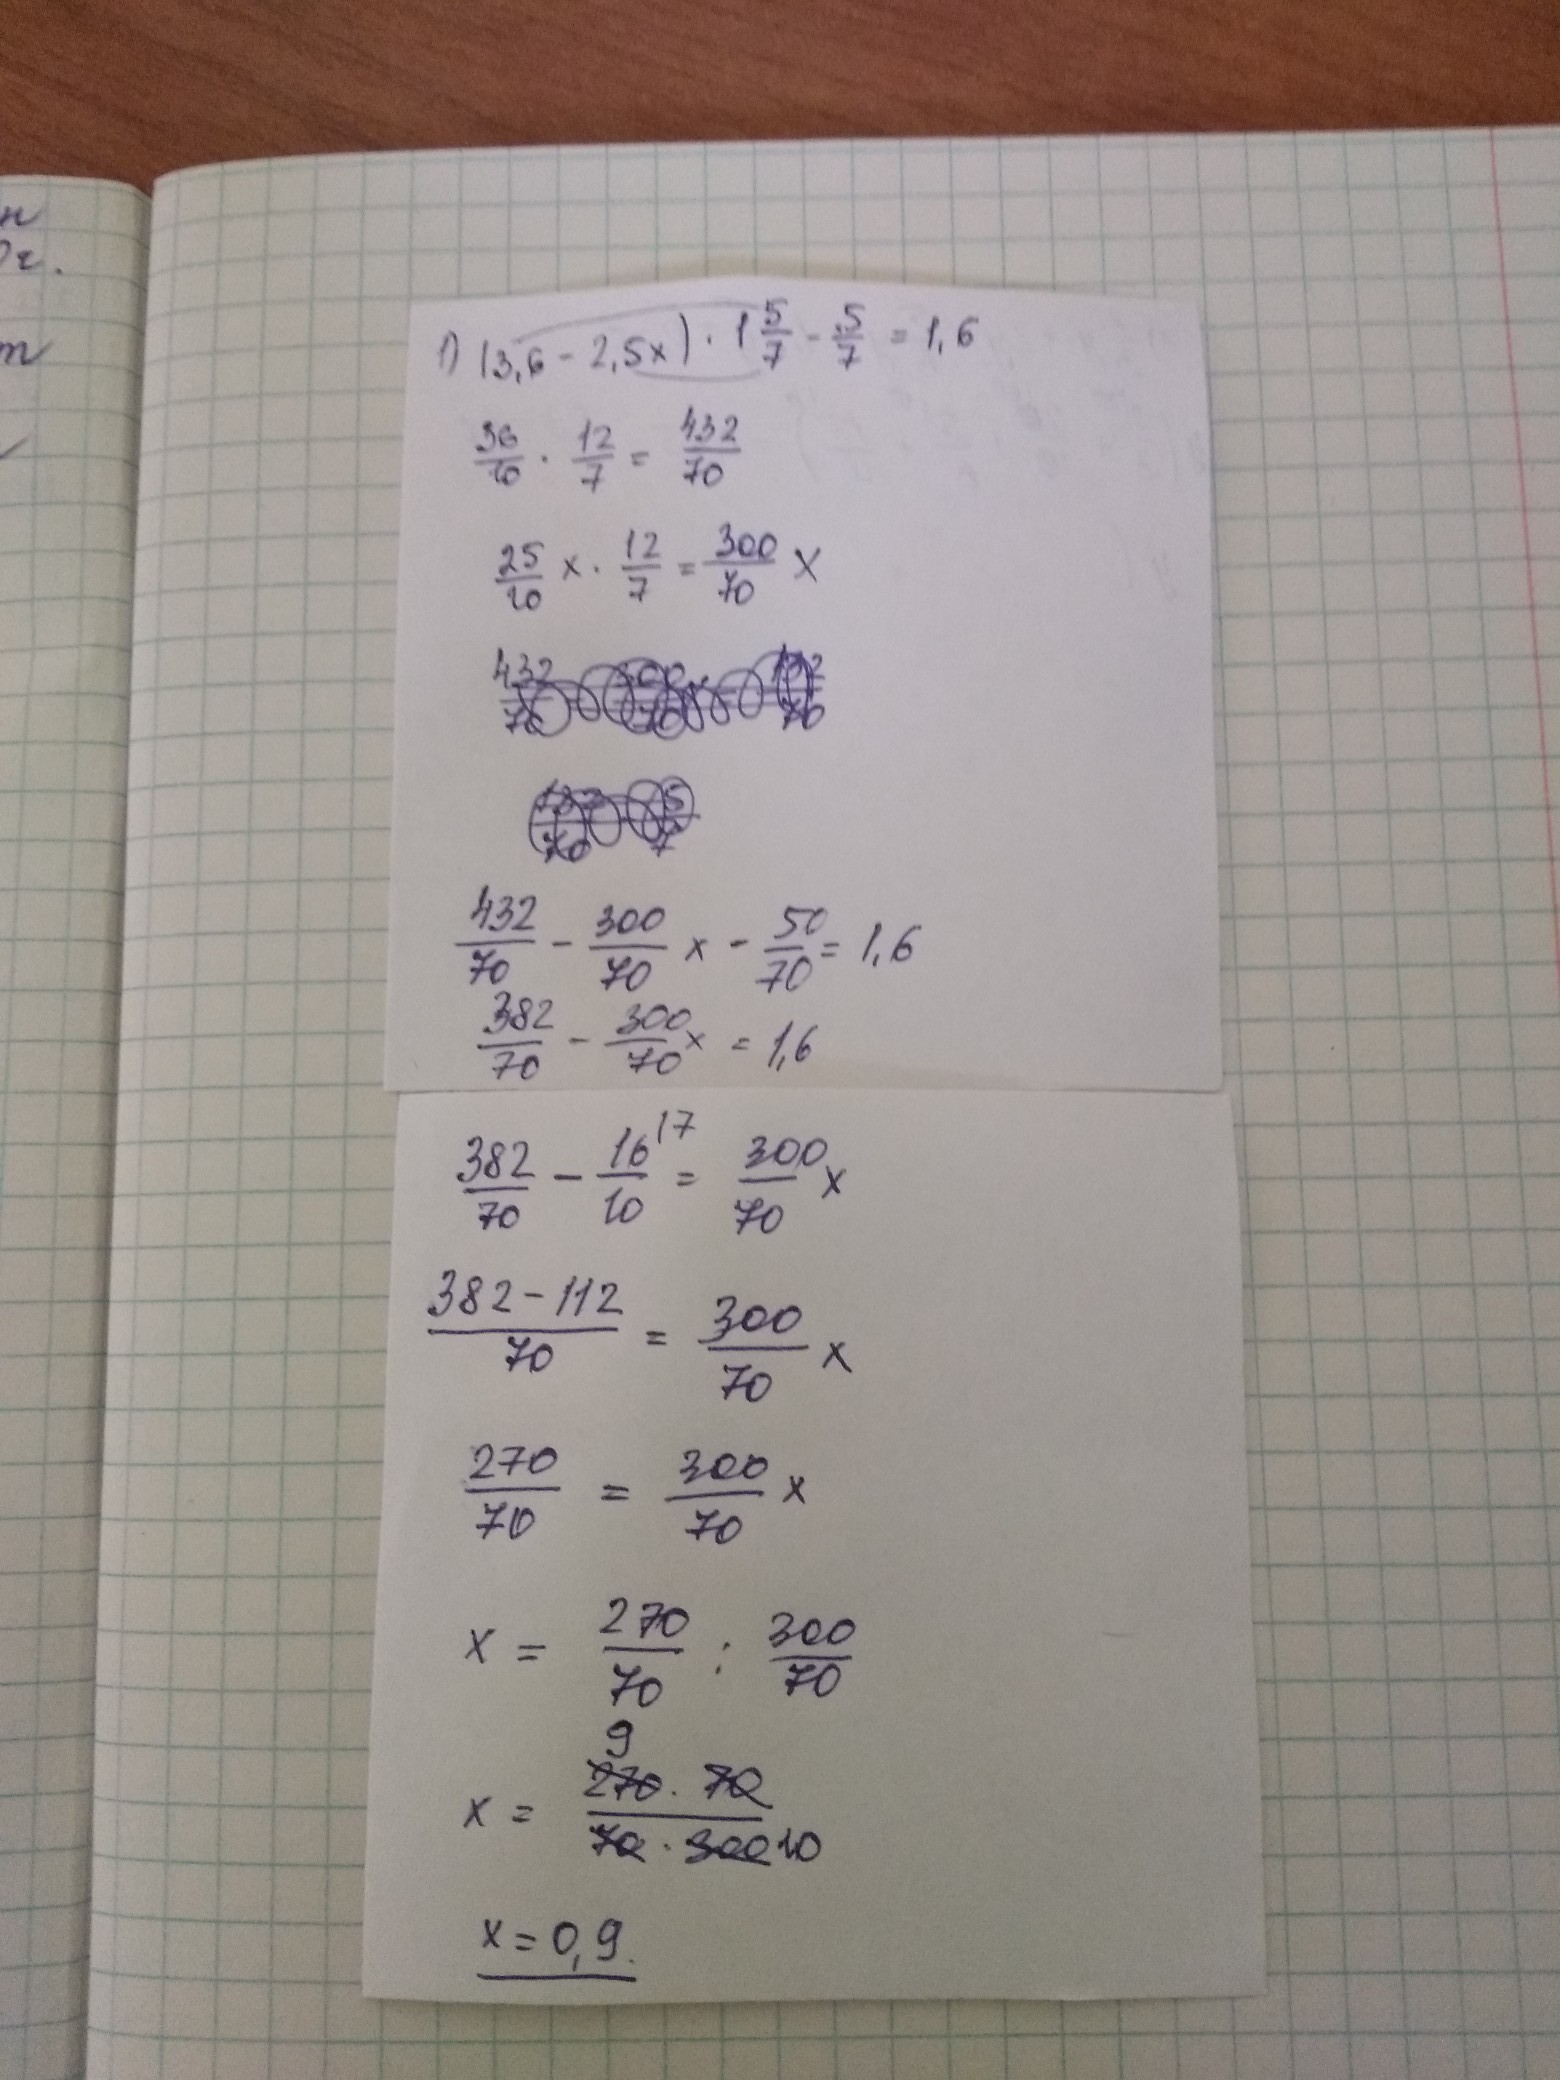 н
0г.
т
1) (3,6 - 2,5x) · 1 5/7 - 5/7 = 1,6
36/10 · 12/7 = 432/70
25/10 x · 12/7 = 300/70 x
432/70 - 300/70 x - 50/70 = 1,6
382/70 - 300/70 x = 1,6
382/70 - 16/10 17 = 300/70 x
382-112/70 = 300/70 x
270/70 = 300/70 x
x = 270/70 : 300/70
9
x = 270 · 70/70 · 300 10
x = 0,9.